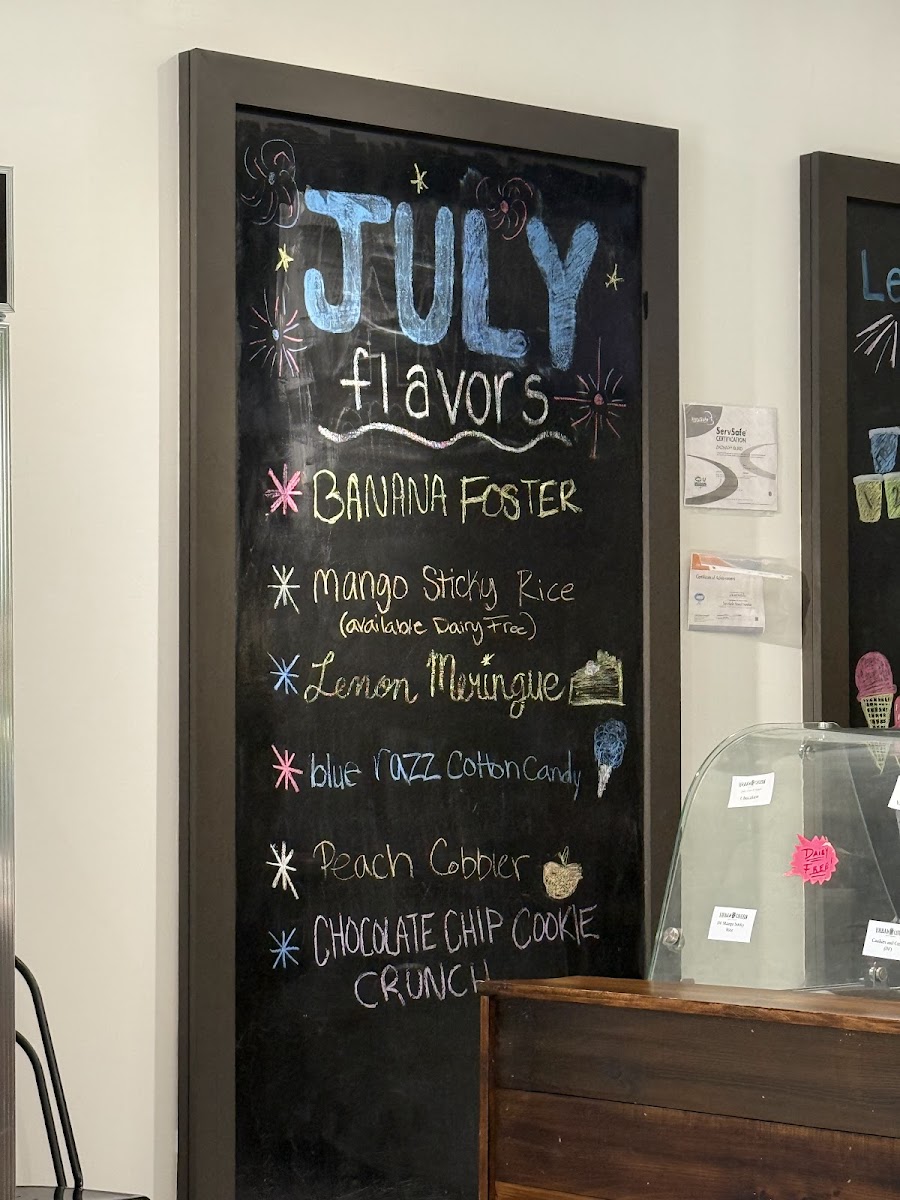 JULY
flavors
BANANA FOSTER
mango Sticky Rice
(available Dairy Free)
Lemon Meringue
blue razz Cotton Candy
Peach Cobbler
CHOCOLATE CHIP COOKIE
CRUNCH
Le
ServSafe
CERTIFICATION
Certificate of Achievement
DAIRY
FREE!